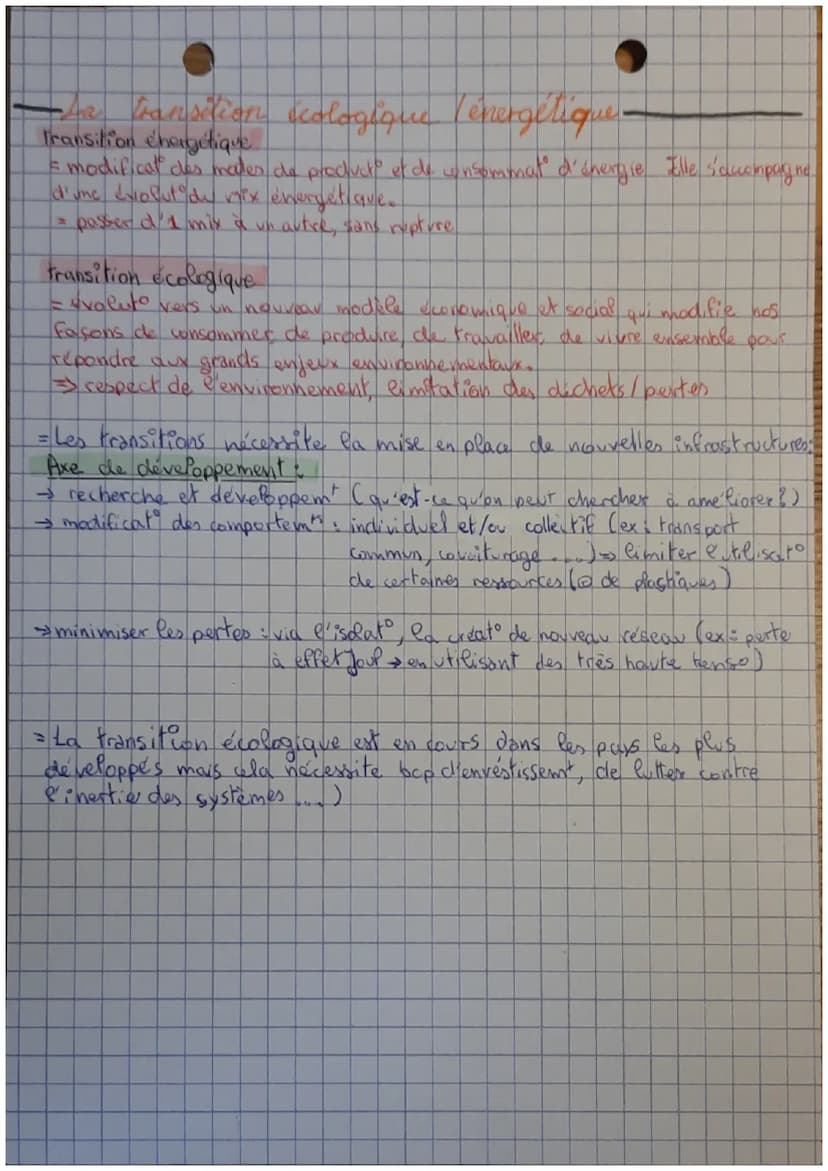 La transition écologique / énergétique
Transition énergétique
= modificat° des modes de product° et de consommat° d'énergie Elle s'accompagne
d'une évolut° du mix énergétique.
= passer d'1 mix à un autre, sans rupture
transition écologique
= évolut° vers un nouveau modèle économique et social qui modifie nos
façons de consommer, de produire, de travailler, de vivre ensemble pour
répondre aux grands enjeux environnementaux.
⇒ respect de l'environnement, limitation des déchets / pertes
= Les transitions nécessite la mise en place de nouvelles infrastructures:
Axe de développement :
→ recherche et développemt (qu'est-ce qu'on peut chercher à améliorer ?)
→ modificat° des comportemts : individuel et/ou collectif (ex : transport
commun, covoiturage ....) ⇒ limiter l'utilisat°
de certaines ressources (⊖ de plastiques)
→ minimiser les pertes : via l'isolat°, la créat° de nouveau réseau (ex : perte
à effet Joul → en utilisant des très haute tens°)
= La transition écologique est en cours dans les pays les plus
développés mais cela nécessite bcp d'envéstissemt, de lutter contre
l'inertie des systèmes ....)